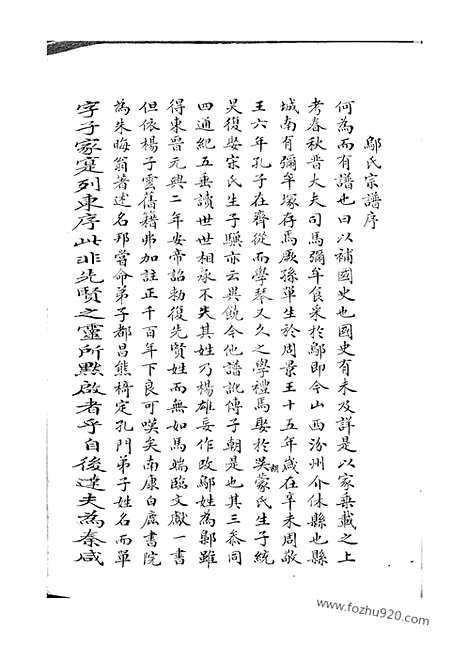 鄔氏宗譜序
何為而有譜也曰以補國史也國史有未及詳是以家乗載之上
考春秋晋大夫司馬彌牟食采於鄔即今山西汾州介休縣也縣
城南有彌牟塚存馬厥孫單生於周景王十五年歲在辛未周敬
王六年孔子在齊從而學琴又久之學禮馬娶於吳蒙氏生子統
吳復娶宋氏生子驥亦云與饒今他譜訛傳子朝是也其三叅同
四通紀五垂讀世世相承不失其姓乃楊雄妄作改鄔姓為鄡雖
得東晋元興二年安帝詔勅復先賢姓而無如馬端臨文獻一書
但依楊子雲舊籍弗加註正千百年下良可嘆矣南康白鹿書院
為朱晦翁著述名邦嘗命弟子都昌熊椅定孔門弟子姓名而單
字子家寔列東序此非先賢之靈所黙啟者乎自後逵夫為秦咸
胡
www.fozhu920.com